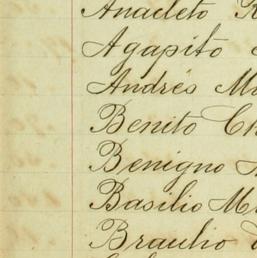 Anacleto
Agapito
Andrés M
Benito Ch
Benigno
Basilio M
Braulio